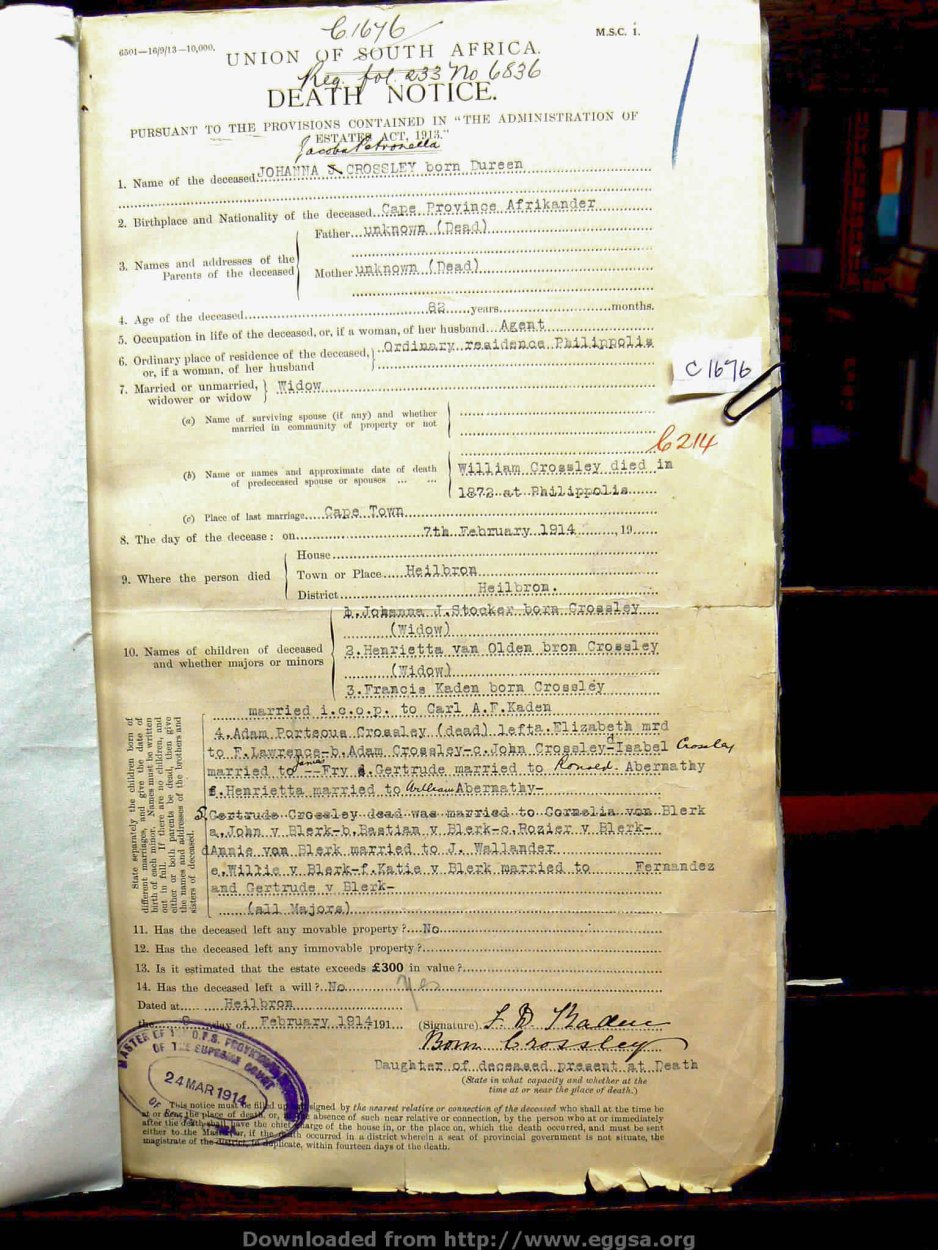 C.1676
M.S.C. i.
6501—16/9/13—10,000.
UNION OF SOUTH AFRICA.
Reg. fol. 233 No 6836
DEATH NOTICE.
PURSUANT TO THE PROVISIONS CONTAINED IN "THE ADMINISTRATION OF
ESTATES ACT, 1913."
Jacoba Petronella
1. Name of the deceased JOHANNA J. CROSSLEY born Dureen
2. Birthplace and Nationality of the deceased Cape Province Afrikander
3. Names and addresses of the Parents of the deceased
Father unknown (Dead)
Mother unknown (Dead)
4. Age of the deceased 82 years months.
5. Occupation in life of the deceased, or, if a woman, of her husband Agent
6. Ordinary place of residence of the deceased, or, if a woman, of her husband Ordinary residence Philippolis
C 1676
7. Married or unmarried, widower or widow Widow
(a) Name of surviving spouse (if any) and whether married in community of property or not
6214
(b) Name or names and approximate date of death of predeceased spouse or spouses ... ...
William Crossley died in
1872 at Philippolis
(c) Place of last marriage Cape Town
8. The day of the decease: on 7th February 1914 , 19
9. Where the person died
House
Town or Place Heilbron
District Heilbron.
10. Names of children of deceased and whether majors or minors
1. Johanna J. Stocker born Crossley
(Widow)
2. Henrietta van Olden bron Crossley
(Widow)
3. Francis Kaden born Crossley
married i.c.o.p. to Carl A.F. Kaden
State separately the children born of different marriages, and give the date of birth of each minor. Names must be written out in full. If there are no children, and either or both parents be dead, then give the names and addresses of the brothers and sisters of deceased.
4. Adam Porteous Crossley (dead) left a. Elizabeth mrd
to F. Lawrence-b. Adam Crossley-c. John Crossley-d Isabel Crossley
married to James Fry e. Gertrude married to Ronald Abernathy
f. Henrietta married to William Abernathy-
5. Gertrude Crossley dead was married to Cornelia von Blerk
a. John v Blerk-b. Bastian v Blerk-c. Rozier v Blerk-
d Annie von Blerk married to J. Wallander
e. Willie v Blerk-f. Katie v Blerk married to Fernandez
and Gertrude v Blerk-
(all Majors)
11. Has the deceased left any movable property? No
12. Has the deceased left any immovable property?
13. Is it estimated that the estate exceeds £300 in value?
14. Has the deceased left a will? No Yes
Dated at Heilbron
the 9 day of February 1914 191
(Signature) F. D. Kaden
Born Crossley
Daughter of deceased present at Death
(State in what capacity and whether at the time at or near the place of death.)
MASTER OF THE O.F.S. PROVINCIAL
OF THE SUPREME COURT
24 MAR 1914
This notice must be filled up signed by the nearest relative or connection of the deceased who shall at the time be
at or near the place of death, or, in the absence of such near relative or connection, by the person who at or immediately
after the death shall have the chief charge of the house in, or the place on, which the death occurred, and must be sent
either to the Master or, if the death occurred in a district wherein a seat of provincial government is not situate, the
magistrate of the district, in duplicate, within fourteen days of the death.
Downloaded from http://www.eggsa.org